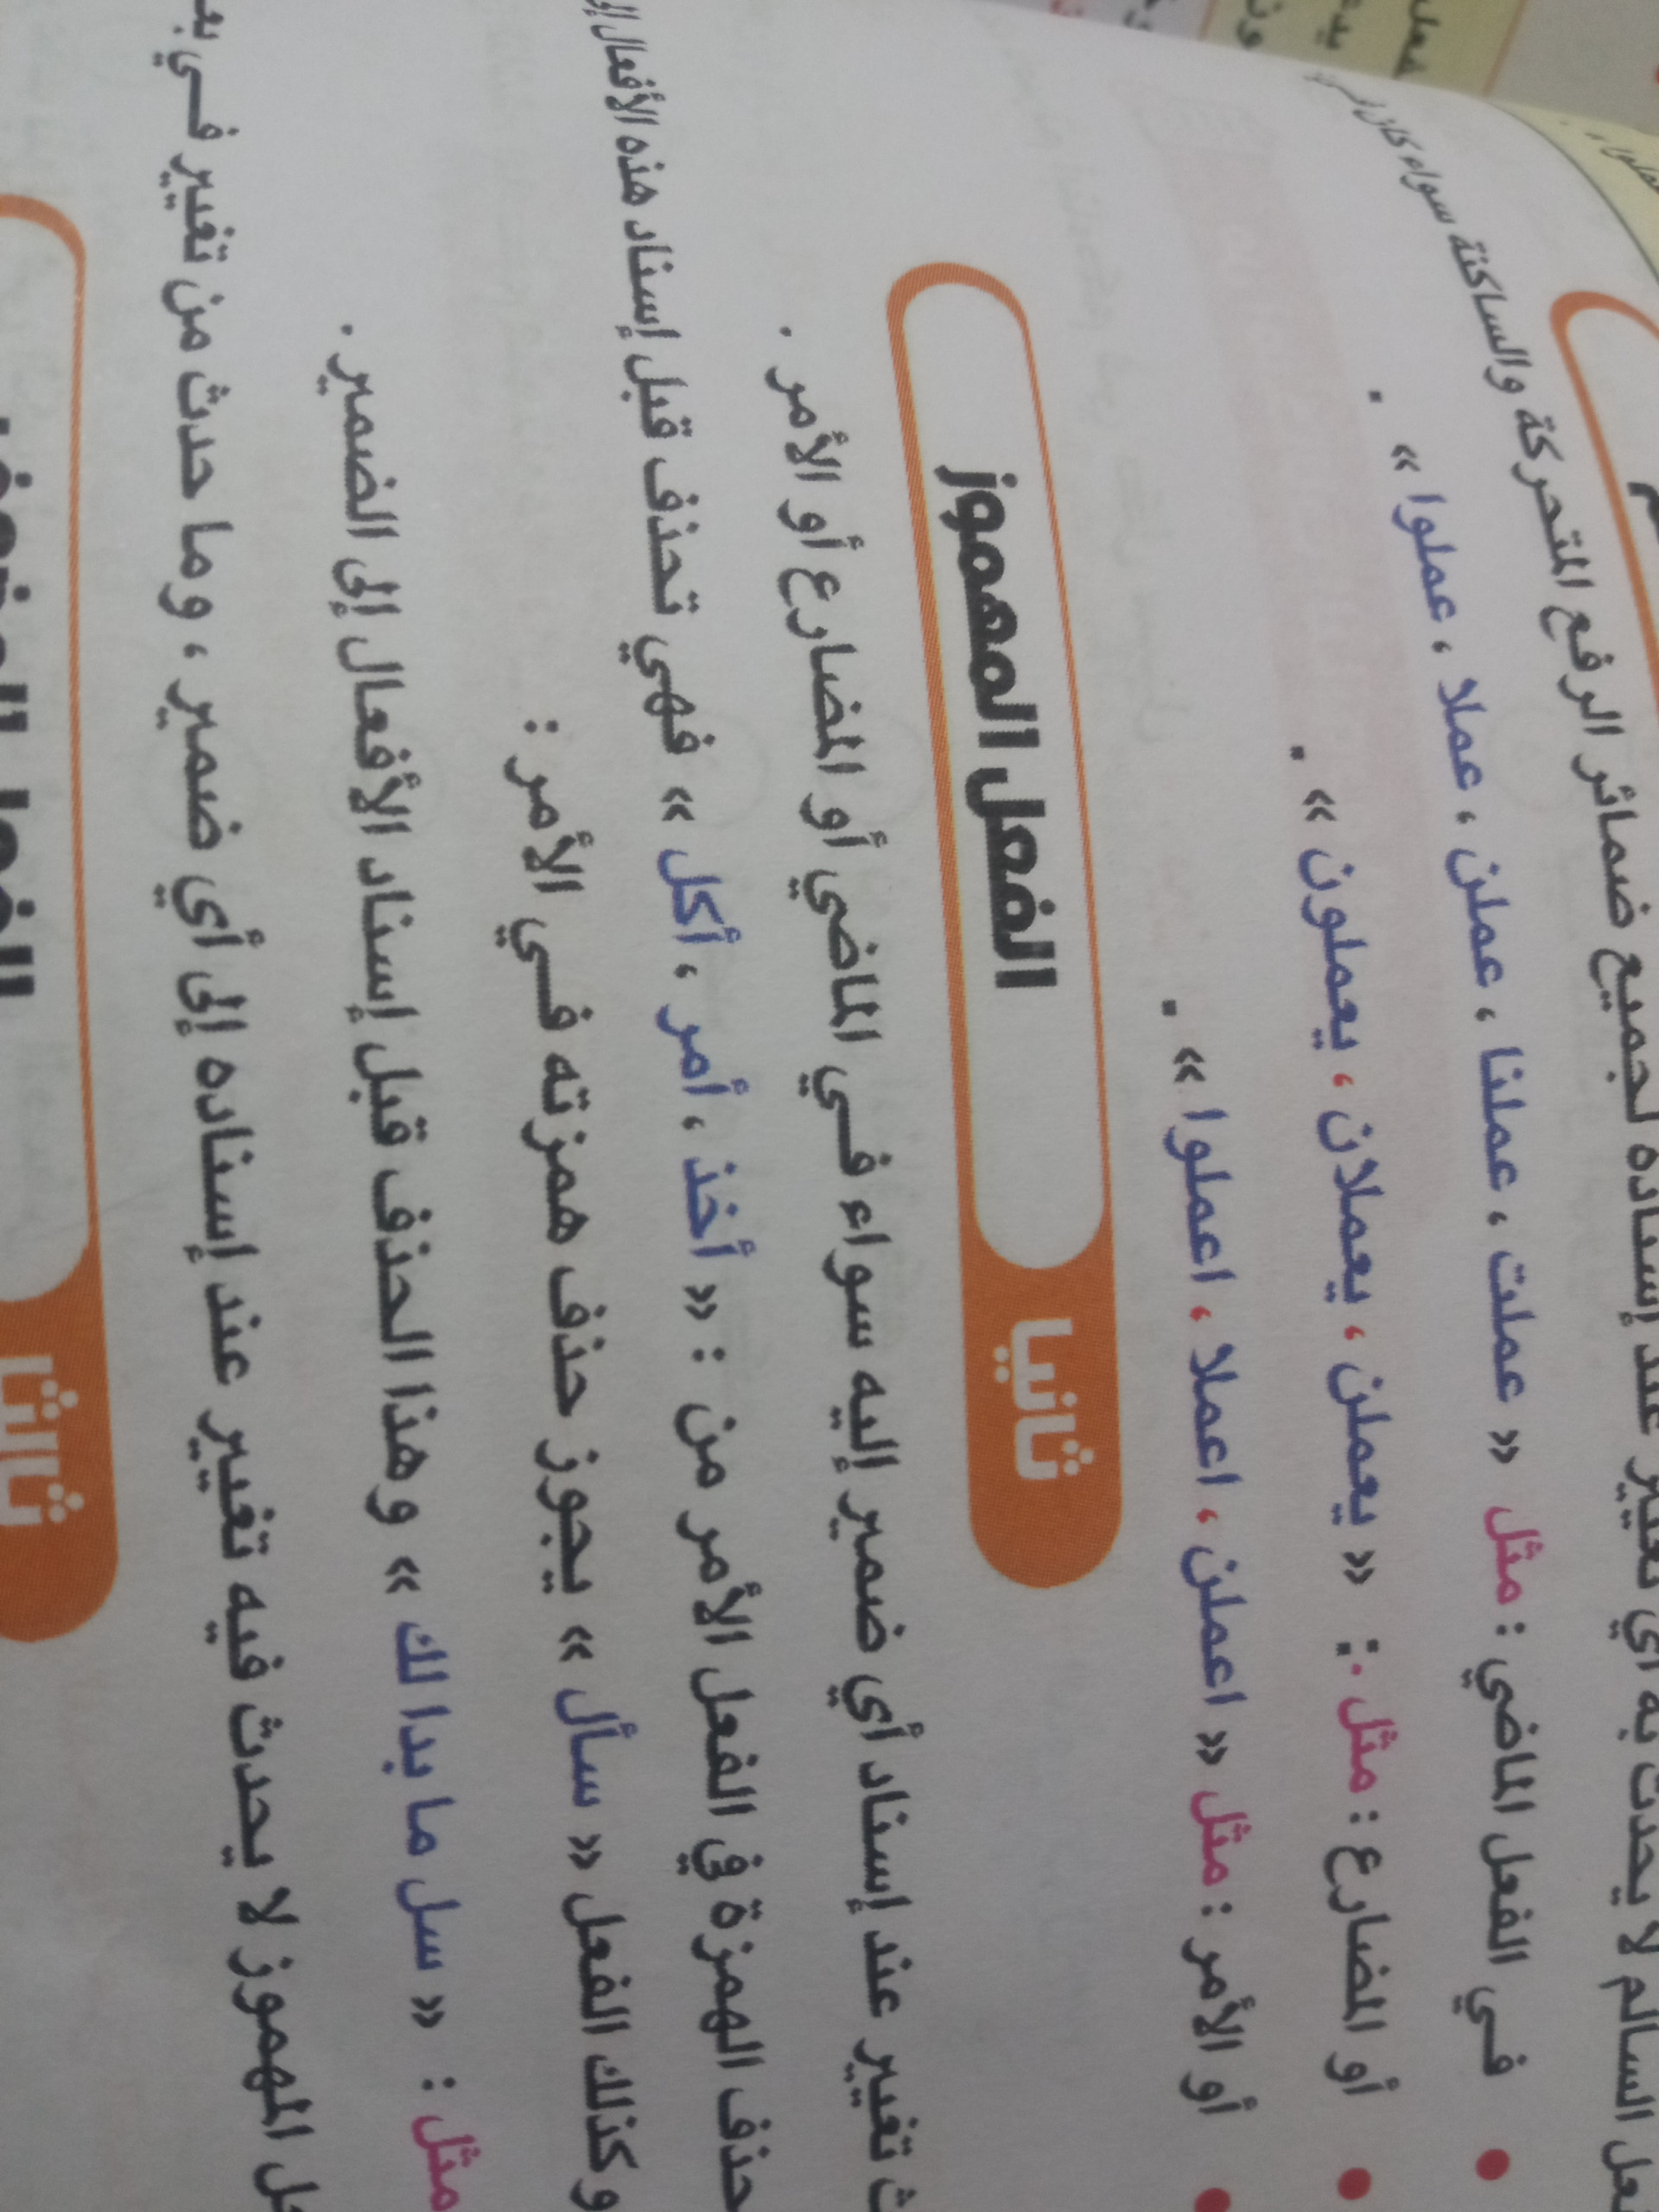 فعل السالم لا يحدث به أي تغيير عند إسناده لجميع ضمائر الرفع المتحركة والساكنة سواء كان
• في الفعل الماضي : مثل « عملت ، عملنا ، عملن ، عملا ، عملوا » .
• أو المضارع : مثل : « يعملن ، يعملان ، يعملون » .
• أو الأمر : مثل « اعملن ، اعملا ، اعملوا » .
ثانيا الفعل المهموز
تغيير عند إسناد أي ضمير إليه سواء في الماضي أو المضارع أو الأمر .
حذف الهمزة في الفعل الأمر من : « أخذ ، أمر ، أكل » فهي تحذف قبل إسناد هذه الأفعال
وكذلك الفعل « سأل » يجوز حذف همزته في الأمر :
مثل : « سل ما بدا لك » وهذا الحذف قبل إسناد الأفعال إلى الضمير .
المهموز لا يحدث فيه تغيير عند إسناده إلى أي ضمير ، وما حدث من تغيير في
ثالثا الفعل